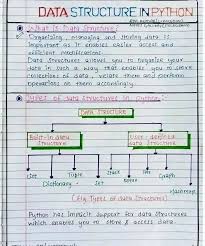 DATA STRUCTURE IN PYTHON
What is Data Structure?
Organizing, managing and storing data is
important as it enables easier access and
efficient modifications.
Data Structures allows you to organize your
data in such a way that enables you to store
collections of data, relate them and perform
operations on them accordingly.
Types of Data Structures in Python:
Data Structure
Built-in data structure
User-defined data structure
List
Tuple
Stack
Tree
Graph
Dictionary
Set
Queue
Hashmap
(Fig: Types of Data Structures)
Python has implicit support for data structures
which enables you to store & access data.